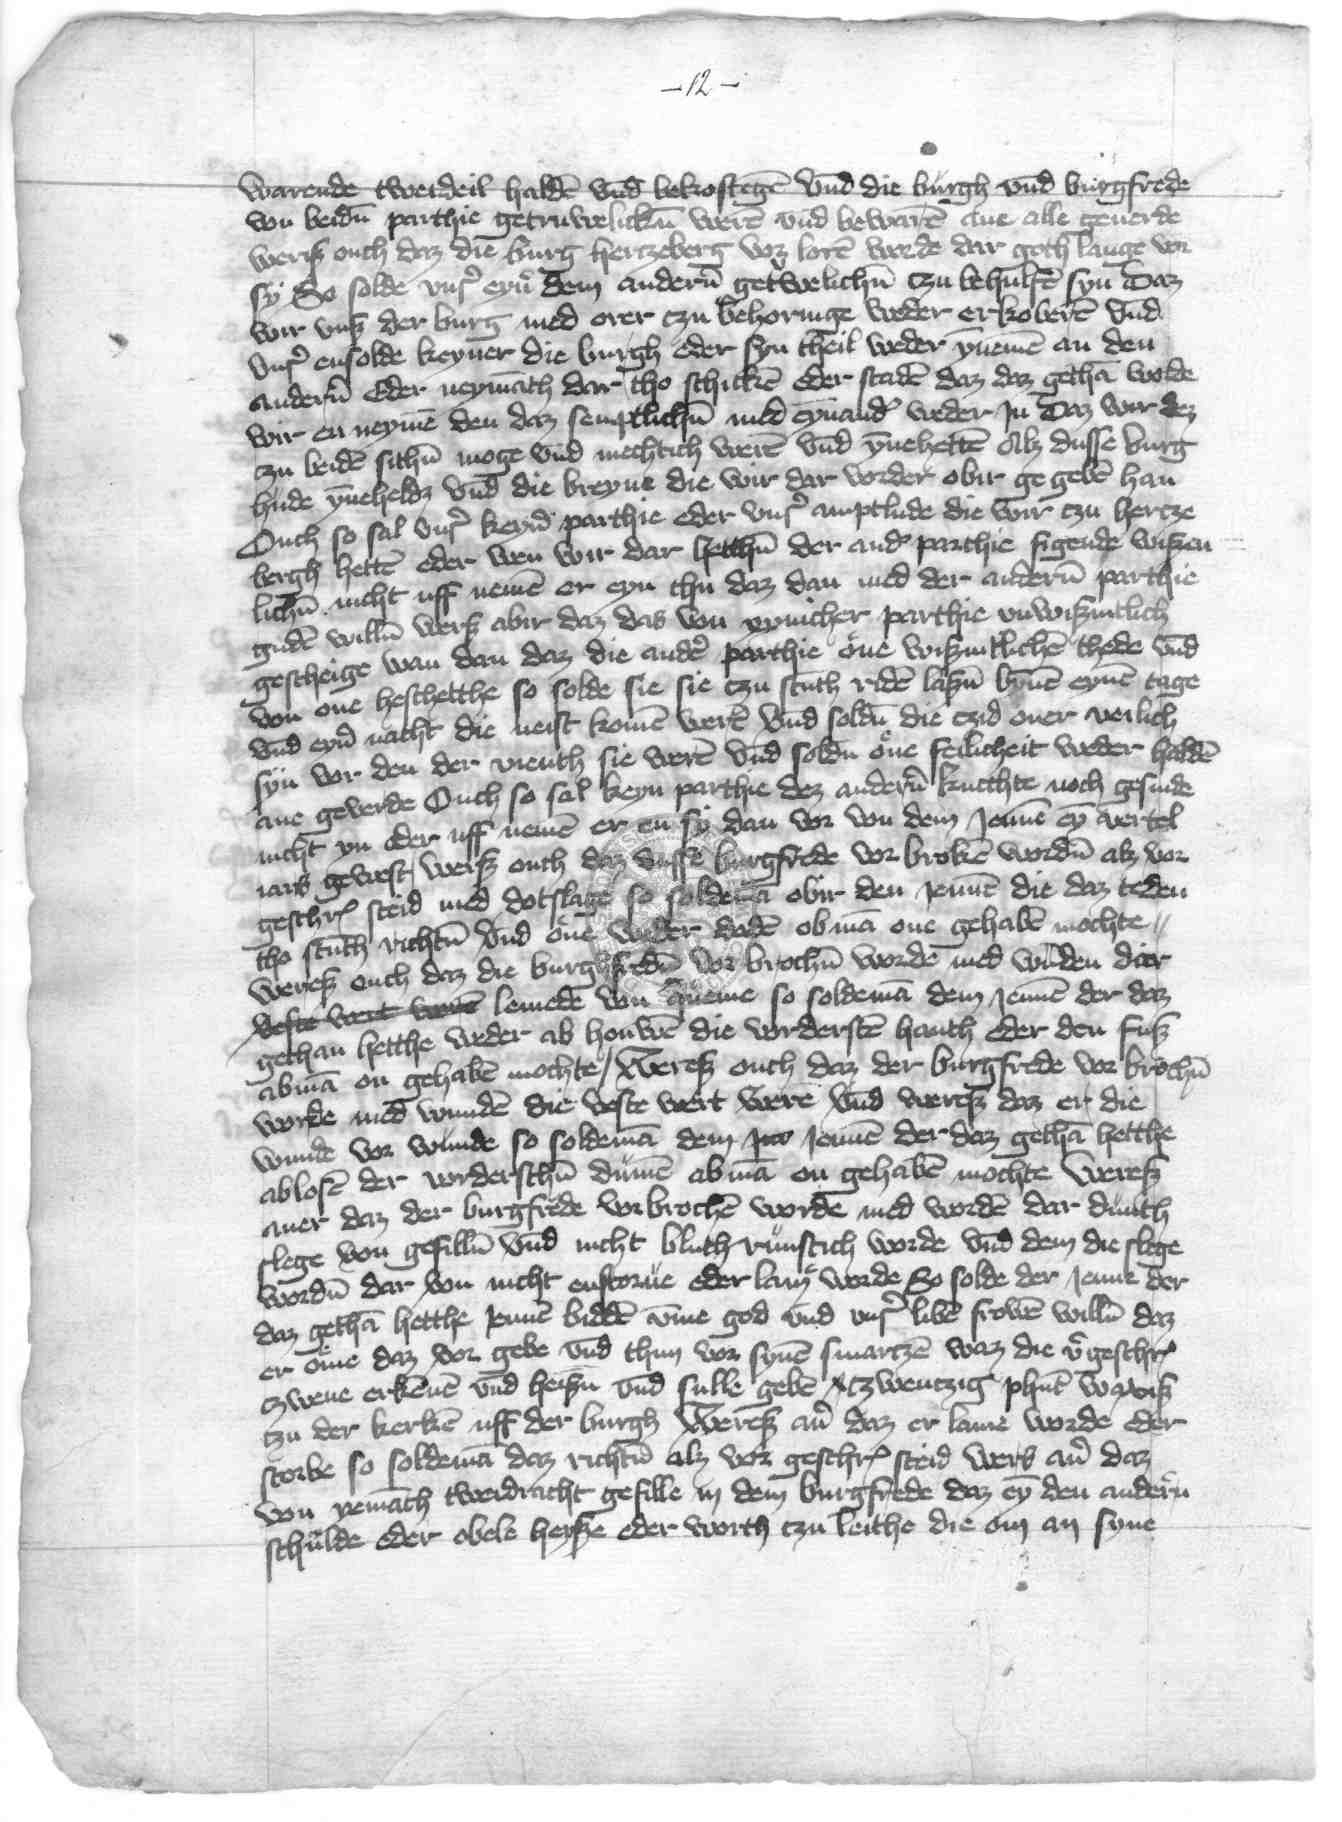 - 12 -
warende tweideil haldē vnd bekostegē vnd die burgh vnd burgfrede
von beidn̄ parthie getruwelickn̄ werē vnd bewarē ane alle geuerde
werß ouch daz die burg hertzeberg vor lorē worde dar goth lange vor
sy So solde vnſ eyn dem andern̄ getrwelichn̄ tzu behulfē syn Daz
wir vnß der burg med orer tzu behoringe weder erkoberē vnd
vnſ ensolde keyner die burgh eder syn theil weder ynemē an den
andern̄ Eder neymāth dar tho schickē eder stadē daz daz gethā worde
wir en neymē den daz semptlichn̄ med eynand weder In Daz wir dez
tzu beidē sithn̄ moge vnd mechtich werē vnd ynehettē Alz dusse burg
hude yneheldz vnd die breyue die wir dar vorder obir ge gebē han
Ouch so sal vnſ keyn parthie eder vnſ amptlude die wir tzu hertze
bergh hettē eder wen wir dar hetthn̄ der and parthie figende wißen
lichn̄ nicht uff nemē er eyn thu daz dan med der andern̄ parthie
gudē willn̄ werß abir daz das von eynicher parthie vnwißintlich
gescheige wan dan daz die ander parthie one wißintlichē thede vnd
von one heschetthe so solde sie sie tzu stuth ridē laßn̄ bynē eynē tage
vnd eyn nacht die neist komē werē vnd soldn̄ die tzid ouer veilich
syn vor den der vienth sie werē vnd soldn̄ one feilicheit weder haldē
ane geverde Ouch so sal keyn parthie dez andern̄ knechte noch gesinde
nicht yn eder uff nemē er en sy dan vor von dem Jennē ey vertel
iars gewest werß ouch daz dusse burgfrede vor brokē wordn̄ alz vor
geschr steid med dotslage so soldemā obir den Jennē die daz teden
tho stuth richtn̄ vnd one weder dodē ob mā one gehabē mochte
wereß ouch daz die burghfredn̄ vor brochn̄ worde med wuden dier
veste wert werē lemede von aneme so soldemā dem Jennē der daz
gethan hetthe weder ab houwē die vorderstē hanth Eder den fuß
abmā on gehabē mochte / Wereß ouch daz der burgfrede vor brochn̄
worde med wundē die veste wert werē vnd wereß daz er die
wunde vor wunde so soldemā dem Jennē der daz gethā hetthe
ablosē der vorderschn̄ dumē abmā on gehabē mochte Wereß
auer daz der burgfrede vorbrochē worde med wordē dar dunth
slege von gefilln̄ vnd nicht bluth runstich worde vnd dem die slege
wordn̄ dar von nicht enstorue eder lam worde So solde der Jenne der
daz gethā hetthe Jennē biddē vme god vnd vnſ libē frowē willn̄ daz
er ome daz vor gebe vnd thun vor synē smartzē waz die v̄geschr
tzwene erkēnē vnd heißn̄ vnd sulle gebē tzwentzig phūt waxiß
tzu der kerkē uff der burgh Wereß an̄ daz er lame worde eder
storbe so soldemā daz richtn̄ alz vor geschr steid werß an̄ daz
von yemāth tweidracht gefille in dem burgfrede daz ey den andern̄
schulde eder obele heyße eder worth tzu leithe die om an syne